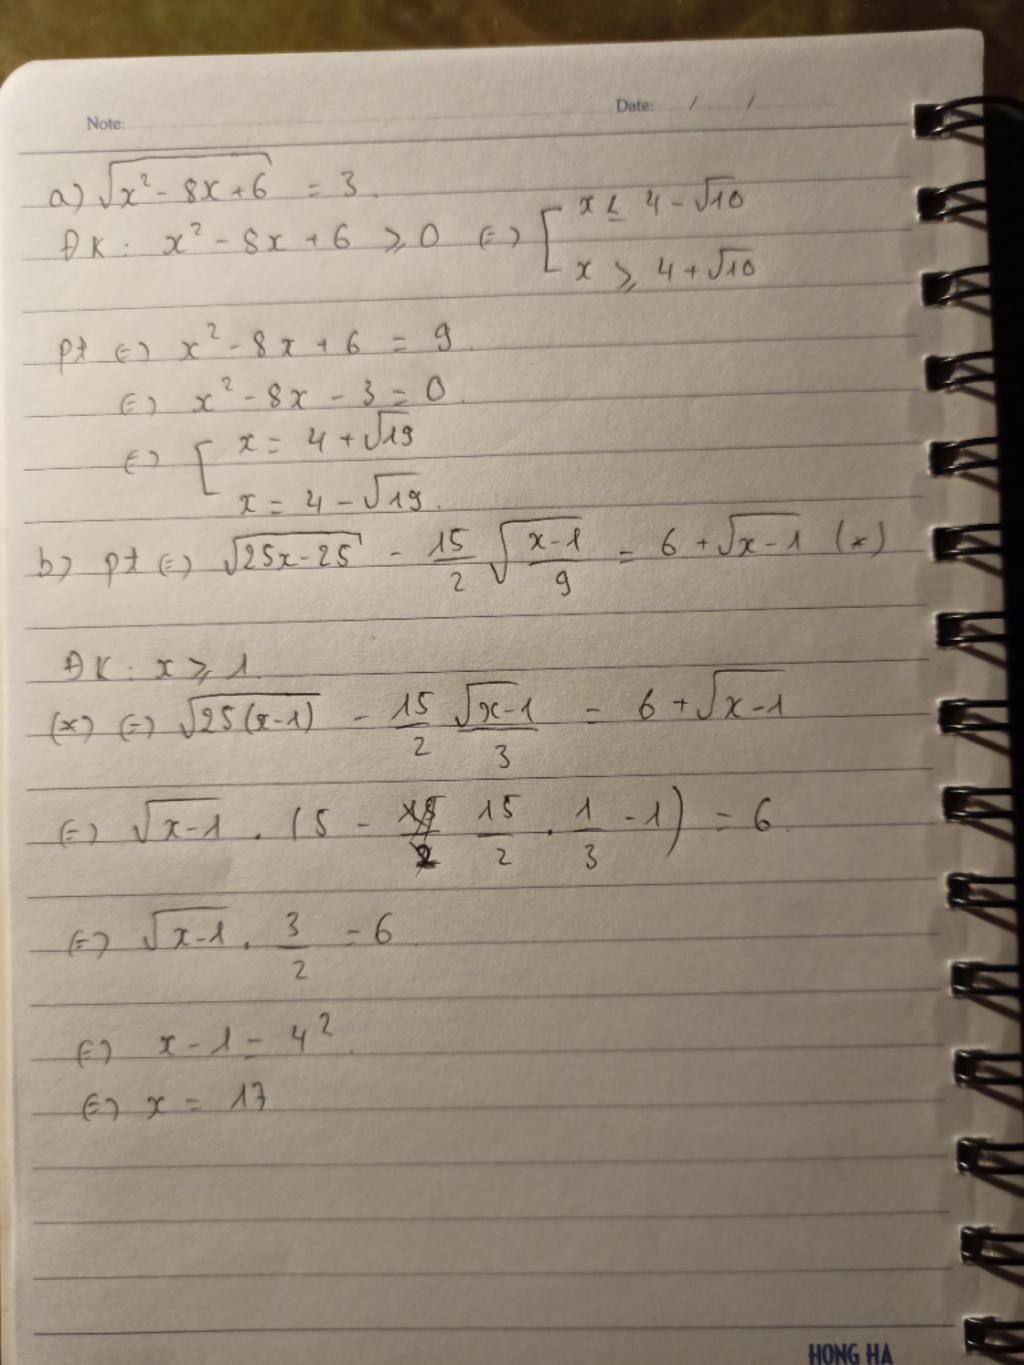 Note:
Date: / /
a) √(x² - 8x + 6) = 3.
ĐK: x² - 8x + 6 ⩾ 0 (=) [ x ≤ 4 - √10
x ⩾ 4 + √10
pt (=) x² - 8x + 6 = 9.
(=) x² - 8x - 3 = 0.
(=) [ x = 4 + √19
x = 4 - √19.
b) pt (=) √(25x - 25) - 15/2 √((x-1)/9) = 6 + √(x-1) (*)
ĐK: x ⩾ 1.
(*) (=) √(25(x-1)) - 15/2 √(x-1)/3 = 6 + √(x-1)
(=) √(x-1) . (5 - 15/2 . 1/3 - 1) = 6.
(=) √(x-1) . 3/2 = 6.
(=) x - 1 = 4².
(=) x = 17
HONG HA